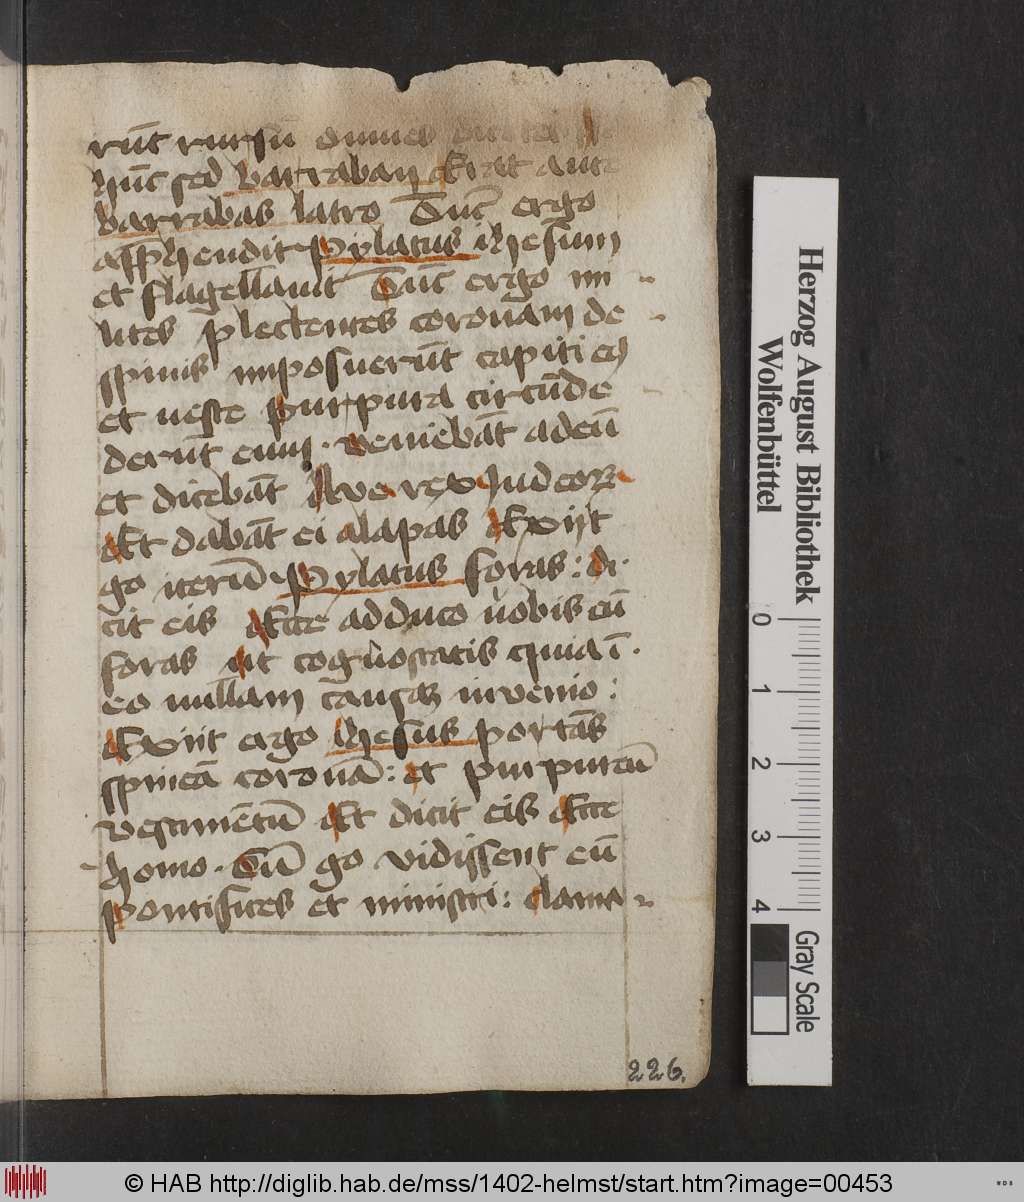 rūt rursū omnes dicētes nō
hūc sed barraban Erat aute
barrabas latro Tūc ergo
apphendit pylatus ihesum
et flagellauit Tūc ergo mi
lites plectentes coronam de
spinis imposuerūt capiti eꝯ
et ueste purpura circūde
derūt eum. veniebāt ad eū
et dicebāt Aue rex Judeoꝝ
Et dabāt ei alapas Exijt
go iterū Pylatus foras: di
cit eis Ecce adduco uobis eū
foras ut cognoscatis quia ī
eo nullam causaꝫ invenio:
Exijt ergo ihesus portās
spineā coronā: et purpureū
vestimētū Et dicit eis Ecce
homo. Cū go vidissent eū
pontifices et ministri: clama
226.
Herzog August Bibliothek
Wolfenbüttel
0 1 2 3 4
Gray Scale
© HAB http://diglib.hab.de/mss/1402-helmst/start.htm?image=00453